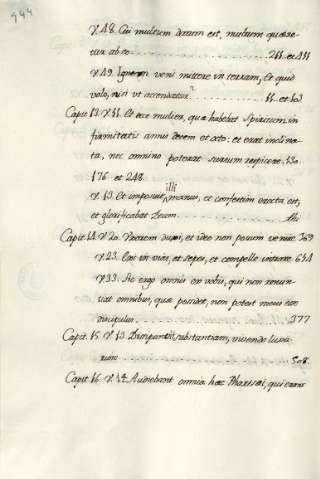 944
V. 48. Cui multum datum est, multum quære-
tur ab eo ........ 211 et 411
V. 49. Ignem veni mittere in terram, et quid
volo, nisi ut accendatur? ........
Capit. 13. V. 11. Et ecce mulier, quæ habebat Spiritum in-
firmitatis annis decem et octo: et erat inclina-
ta, nec omnino poterat sursum respicere. 150
176 et 248.
V. 13. Et imposuit illi manus, et confestim erecta est,
et glorificabat Deum ........
Capit. 14. V. 20. Uxorem duxi, et ideo non possum venire. 309
V. 23. Exi in vias, et sepes, et compelle intrare. 654
V. 33. Sic ergo omnis ex vobis, qui non renun-
tiat omnibus, quæ possidet, non potest meus esse
discipulus ........ 377
Capit. 15. V. 13. Dissipavit substantiam, vivendo luxu-
riose ........ 508.
Capit. 16. V. 14. Audiebant omnia hæc Pharisæi, qui erant